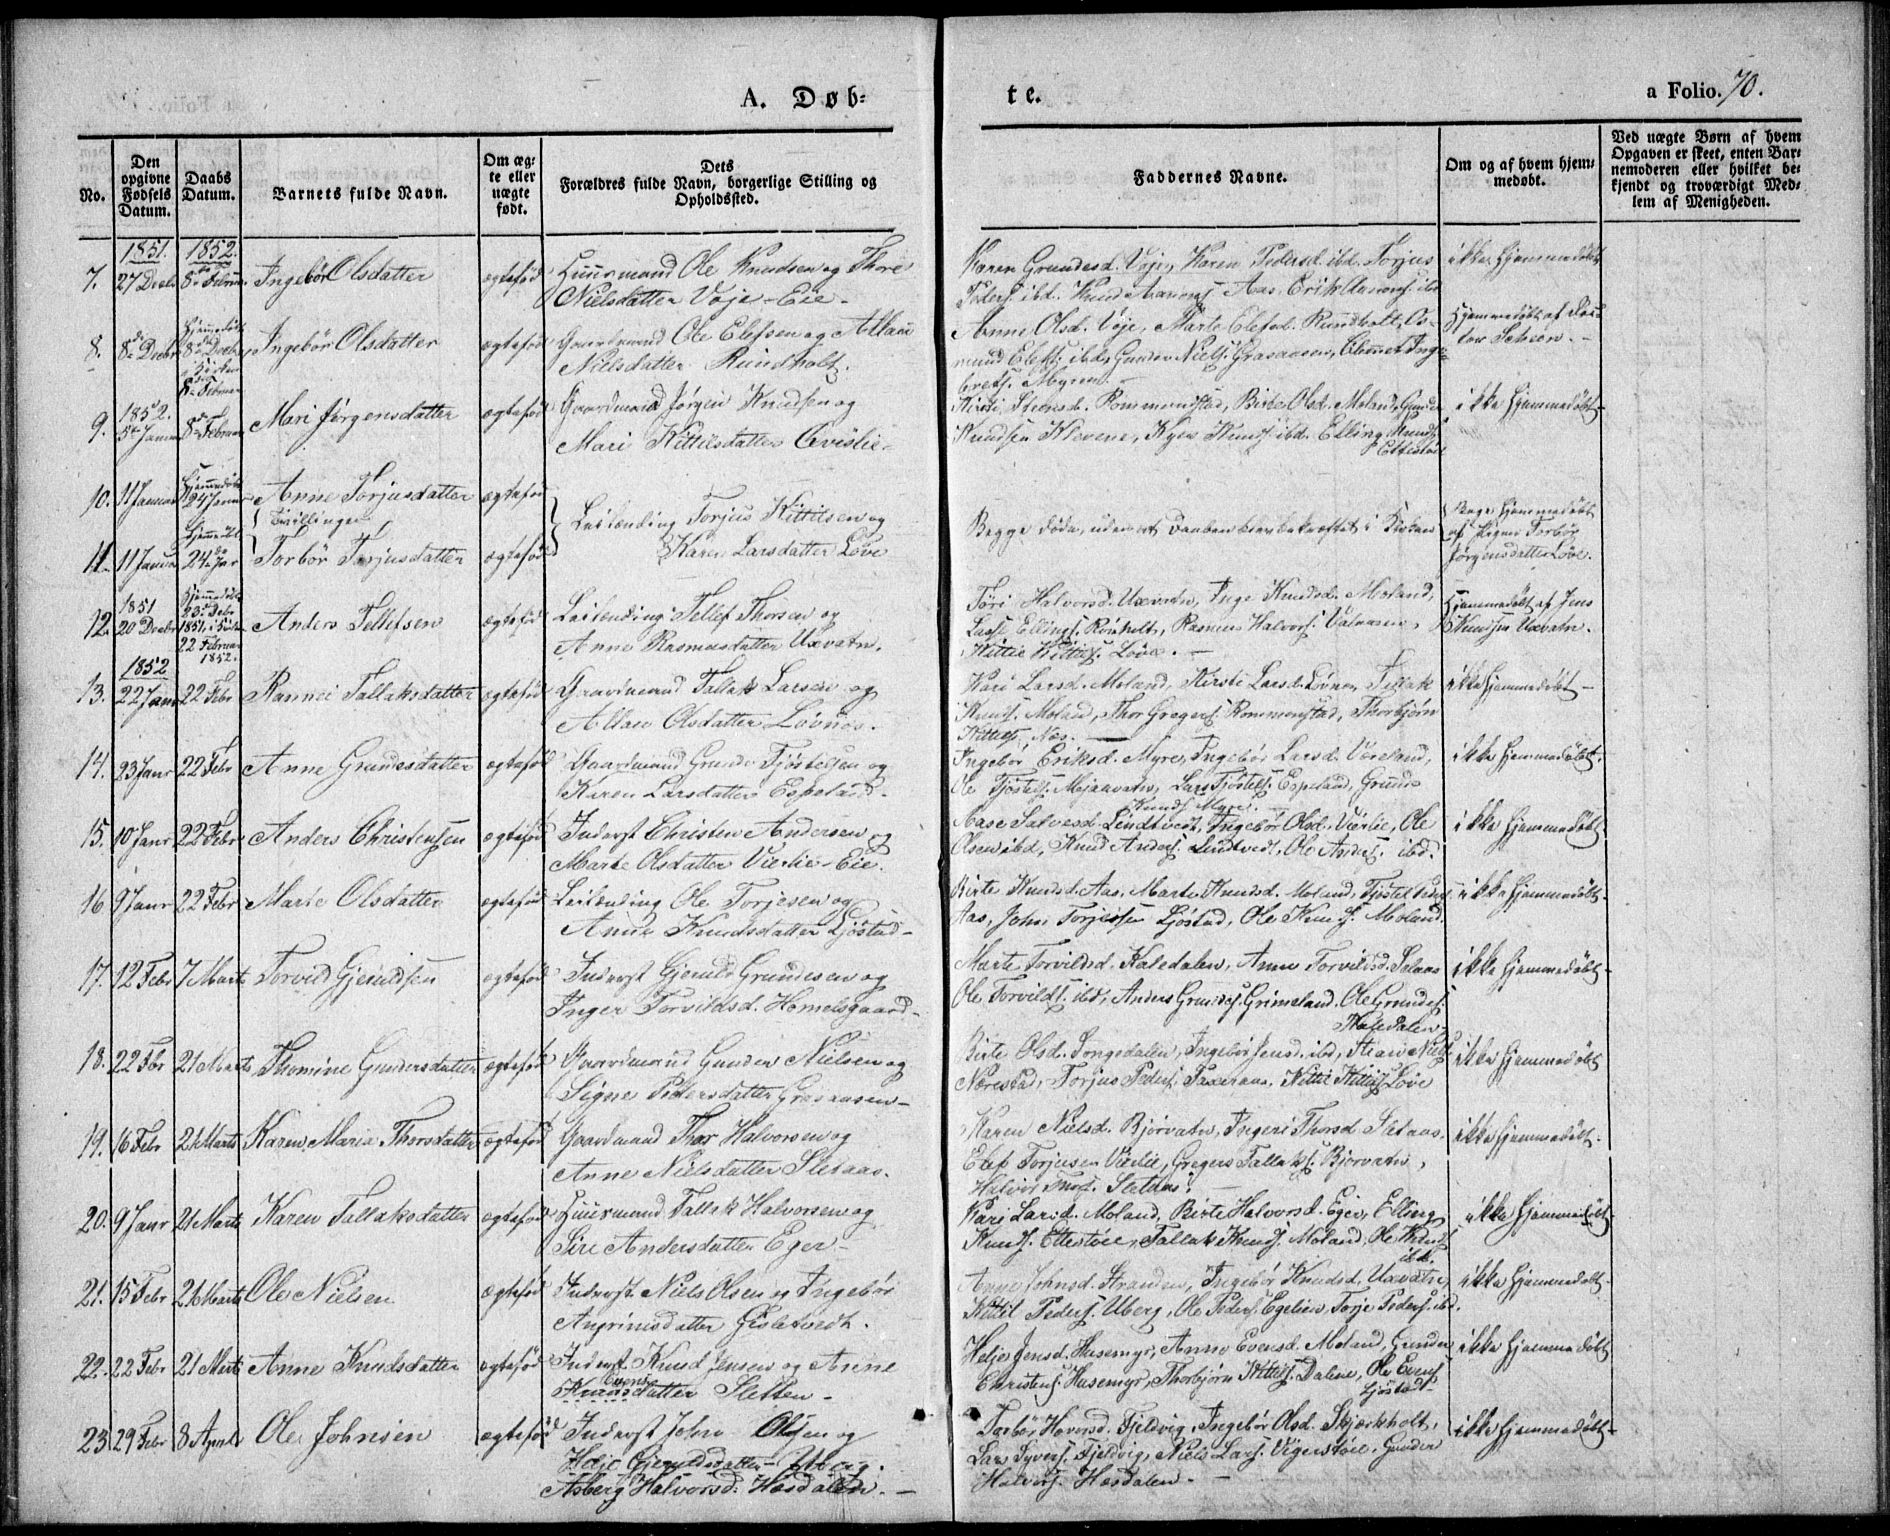 A. Døb-
te.
a Folio. 70.
No.
Den opgivne Fødsels Datum.
Daabs Datum.
Barnets fulde Navn.
Om ægte eller uægte født.
Dets
Forældres fulde Navn, borgerlige Stilling og
Opholdssted.
Faddernes Navne.
Om og af hvem hjemmedøbt.
Ved uægte Børn af hvem
Opgaven er skeet, enten Bar-
nemoderen eller hvilket be-
kjendt og troværdigt Med-
lem af Menigheden.
1851. 1852.
7. 27 Decbr 8de Februar Ingebør Olsdatter ægtefød Huusmand Ole Knudsen og Thore
Nielsdatter Vøje-Eie.
Karen Grundesd. Vøje, Karen Pedersd. ibd. Torjus
Peders. ibd. Knud Aanons. Aas. Erik Aanons. ibd
ikke hjemmedøbt
8. 8de Decbr Hjemmedøbt 8de Decbr i Kirken 8de Februar Ingebør Olsdatter ægtefød Gaardmand Ole Elefsen og Allau
Nielsdatter Rundholt.
Anne Olsd. Vøje, Marte Elefsd. Rundholt, Os-
mund Elefs. ibd, Gunder Niels. Grasaasen, Clemet Inge-
brets. Myren.
Hjemmedøbt af Doc-
tor Scheen.
1852.
9. 5te Januar 8de Februar Mari Jørgensdatter ægtefød Gaardmand Jørgen Knudsen og
Mari Kittilsdatter Qvislie.
Kirsti Steensd. Rommundstad, Birte Olsd. Moland, Gunder
Knudsen Klevene, Knud ibd. Elling Knuds.
Ettestøl
ikke hjemmedøbt
10. 11 Januar Hjemmedøbt 24 Januar Anne Torjusdatter ægtefød
Tvillinger
Leilending Torjus Kittilsen og
Karen Larsdatter Løve
Begge døde, uden at Daaben blev bekræftet i Kirken
Begge hjemmedøbt
af Pigen Torbør
Jørgensdatter Løve.
11. 11 Januar Hjemmedøbt 24de Jar Torbør Torjusdatter ægtefød
1851
12. 20 Decbr Hjemmedøbt 23de Decbr 1851, i Kirken 22 Februar 1852. Anders Tellefsen ægtefød Leilending Tellef Thorsen og
Anne Rasmusdatter Uxvatn.
Tøri Halvorsd. Uxvatn, Inge Knudsd. Moland,
Lasse Ellings. Rønholt, Rasmus Halvors. Valaasen,
Kittil Kittils. Løve.
Hjemmedøbt af Jens
Knudsen Uxvatn.
1852
13. 22 Janr 22 Febr Rannei Tallaksdatter ægtefød Gaardmand Tallak Larsen og
Allau Olsdatter Løvnes.
Kari Larsd. Moland, Kirsti Larsd. Løvnes, Tellak
Knuds. Moland, Thor Gregers. Rommenstad, Thorbjørn
Kittils. Næs.
ikke hjemmedøbt
14. 23 Janr 22 Febr Anne Grundesdatter ægtefød Gaardmand Grunde Tjøstelsen og
Karen Larsdatter Espeland.
Ingebør Eriksd. Myre, Ingebør Larsd. Væreland,
Ole Tjøstels. Mjaavatn, Lars Tjøstels. Espeland, Grunde
Knuds. Myre.
ikke hjemmedøbt.
15. 10 Janr 22 Febr Anders Christensen ægtefød Inderst Christen Andersen og
Marte Olsdatter Vierlie-Eie.
Aase Salvesd. Lindtvedt, Ingebør Olsd. Vierlie, Ole
Olsen ibd, Knud Anders. Lindtvedt, Ole Anders. ibd.
ikke hjemmedøbt
16. 9 Janr 22 Febr Marte Olsdatter ægtefød Leilending Ole Torjesen og
Anne Knudsdatter Ljøstad
Birte Knudsd. Aas, Marte Knudsd. Moland, Tjøstel Peders.
Aas, John Torjesen Ljøstad, Ole Knuds. Moland.
ikke hjemmedøbt
17. 12 Febr 7 Marts Torvild Gjeruldsen ægtefød Inderst Gjeruld Grundesen og
Inger Torvildsd. Homelsgaard
Marte Torvildsd. Kaledalen, Anne Torvildsd. Selaas
Ole Torvilds. ibd, Anders Grundes. Grimeland, Ole Grundes.
Kaledalen
ikke hjemmedøbt
18. 22 Fbr 21 Marts Thomine Gundersdatter ægtefød Gaardmand Gunder Nielsen og
Signe Pedersdatter Grasaasen
Birte Olsd. Songedalen, Ingebør Jensd. ibd, Niels.
Nærestad, Torjus Peders. Kittil Kittils. Løve
ikke hjemmedøbt
19. 6 Febr 21 Marts Karen Maria Thorsdatter ægtefød Gaardmand Thor Halvorsen og
Anne Nielsdatter Sletaas.
Karen Nielsd. Bjorvatn, Ingeri Thorsd. Sletaas.
Elef Torjusen Vierlie, Gregers Tallaks. Bjorvatn,
Halvor Thors. Sletaas.
ikke hjemmedøbt
20. 9 Janr 21 Marts Karen Tallaksdatter ægtefød Huusmand Tallak Halvorsen og
Siri Andersdatter Eger
Kari Larsd. Moland, Birte Halvorsd. Eger, Elling
Knuds. Ettestøle, Tallak Knuds. Moland, Ole Knuds.
ibd.
ikke hjemmedøbt
21. 15 Febr 21 Marts Ole Nielsen ægtefød Inderst Niels Olsen og Ingebør
Asgrimsdatter Gisletvedt.
Anne Johnsd. Stranden, Ingebør Knudsd. Uxvatn,
Kittil Peders. Uberg, Ole Peders. Egelien, Torje Peders. ibd.
ikke hjemmedøbt
22. 22 Febr 21 Marts Anne Knudsdatter ægtefød Inderst Knud Jensen og Anne
Evens
Knudsdatter Sletten
Helje Jensd. Hasemyr, Anne Evensd. Moland, Gunder
Christens. Hasemyr, Thorbjørn Kittils. Dalene, Ole Evens.
Ljøstad
ikke hjemmedøbt
23. 29 Febr 8 April Ole Johnsen ægtefød Inderst John Olsen og
Helje Gjeruldsdatter Uberg.
Asberg Halvorsd. Hasdalen.
Torbør Havorsd. Fjeldvig, Ingebør Olsd. Skjærkholt,
Lars Syvers. Fjeldvig, Niels Lars. Vigerstøle, Gunder
Halvors. Hasdalen.
ikke hjemmedøbt